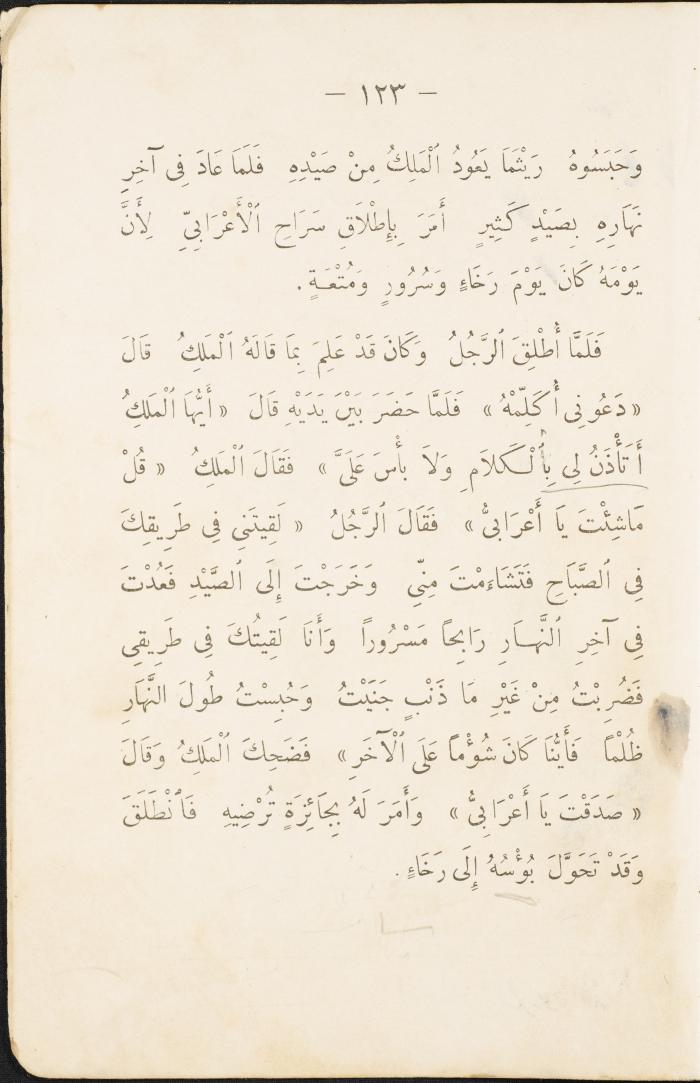 — ١٢٣ —
وَحَبَسُوهُ رَيْثَمَا يَعُودُ ٱلْمَلِكُ مِنْ صَيْدِهِ فَلَمَا عَادَ فِى آخِرِ
نَهَارِهِ بِصَيْدٍ كَثِيرٍ أَمَرَ بِإِطْلَاقِ سَرَاحِ ٱلْأَعْرَابِىِّ لِأَنَّ
يَوْمَهُ كَانَ يَوْمَ رَخَاءٍ وَسُرُورٍ وَمُتْعَةٍ .
فَلَمَّا أُطْلِقَ ٱلرَّجُلُ وَكَانَ قَدْ عَلِمَ بِمَا قَالَهُ ٱلْمَلِكُ قَالَ
« دَعُونِى أُكَلِّمْهُ » فَلَمَّا حَضَرَ بَيْنَ يَدَيْهِ قَالَ « أَيُّهَا ٱلْمَلِكُ
أَتَأْذَنُ لِى بِٱلْكَلَامِ وَلَا بأْسَ عَلَىَّ » فَقَالَ ٱلْمَلِكُ « قُلْ
مَاشِئْتَ يَا أَعْرَابىُّ » فَقَالَ ٱلرَّجُلُ « لَقِيتَنِى فِى طَرِيقِكَ
فِى ٱلصَّبَاحِ فَتَشَاءَمْتَ مِنِّى وَخَرَجْتَ إِلَى ٱلصَّيْدِ فَعُدْتَ
فِى آخِرِ ٱلنَّهَارِ رَابِحاً مَسْرُوراً وَأَنَا لَقِيتُكَ فِى طَرِيقِى
فَضُرِبْتُ مِنْ غَيْرِ مَا ذَنْبٍ جَنَيْتُ وَحُبِسْتُ طُولَ النَّهَارِ
ظُلْماً فَأَيُّنَا كَانَ شُوْماً عَلَى ٱلْآخَرِ » فَضَحِكَ ٱلْمَلِكُ وَقَالَ
« صَدَقْتَ يَا أَعْرَابِىُّ » وَأَمَرَ لَهُ بِجَائِزَةٍ تُرْضِيهِ فَٱنْطَلَقَ
وَقَدْ تَحَوَّلَ بُؤْسُهُ إِلَى رَخَاءٍ .